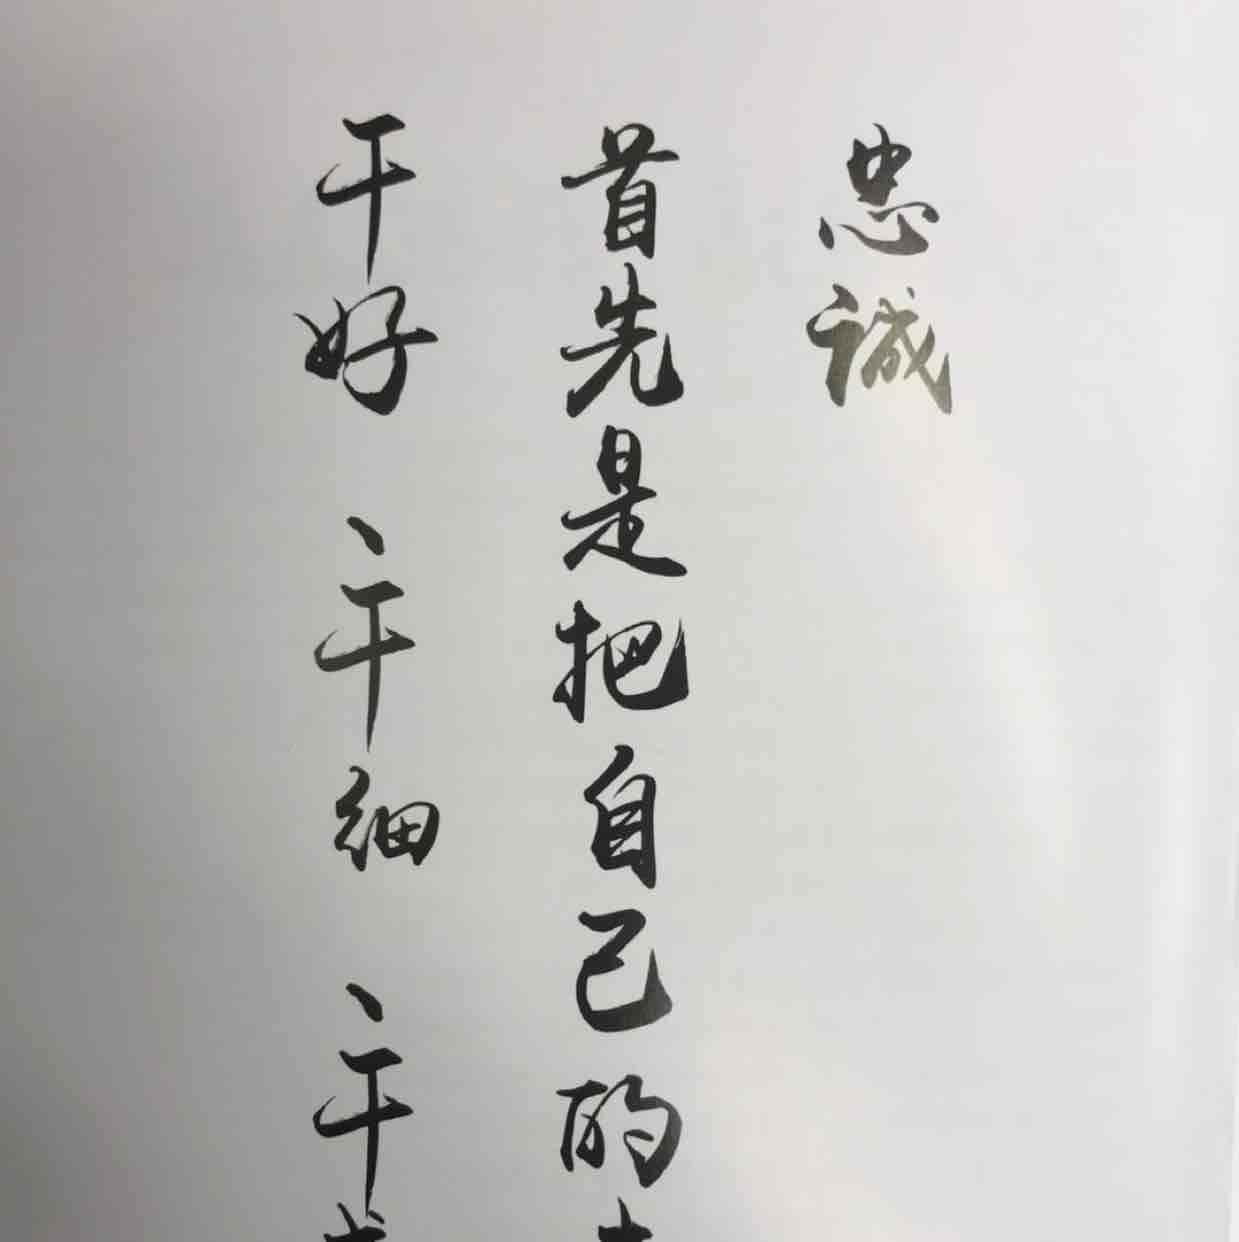 忠誠
首先是把自己的
干好、干细、干